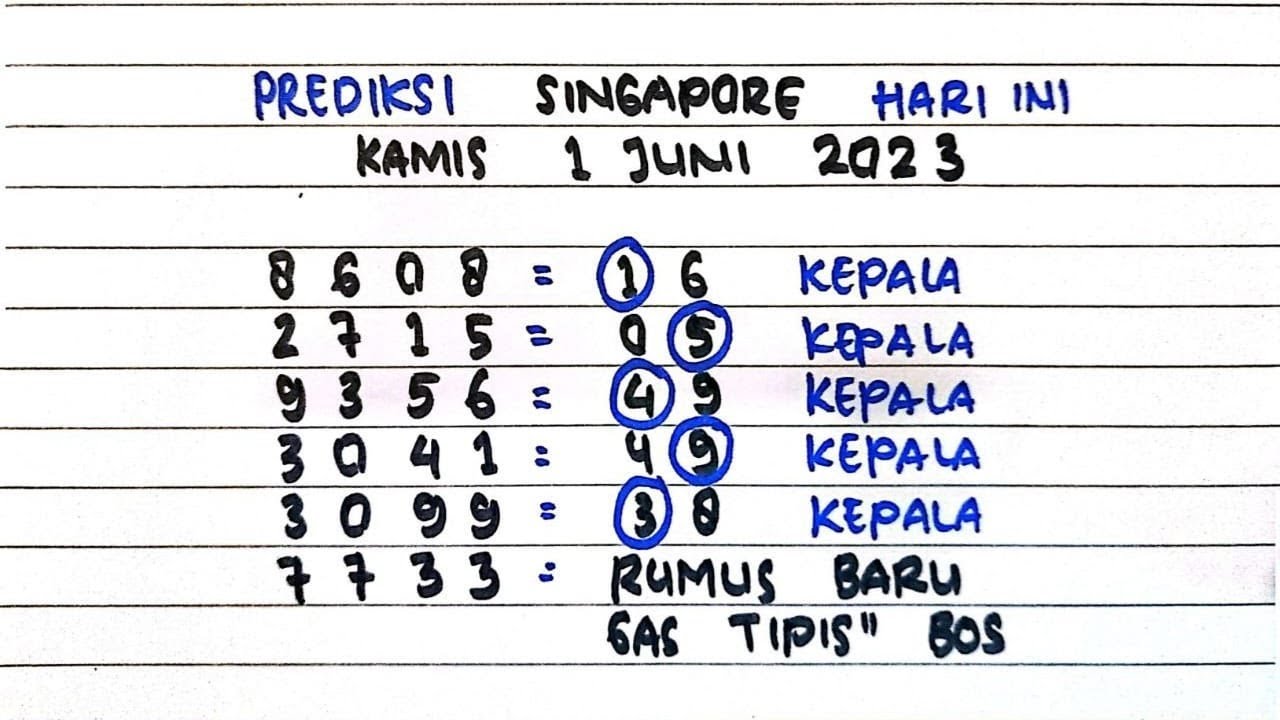 PREDIKSI SINGAPORE HARI INI
KAMIS 1 JUNI 2023
8 6 0 8 = 1 6 KEPALA
2 7 1 5 = 0 5 KEPALA
9 3 5 6 = 4 9 KEPALA
3 0 4 1 = 4 9 KEPALA
3 0 9 9 = 3 8 KEPALA
7 7 3 3 = RUMUS BARU
GAS TIPIS" BOS